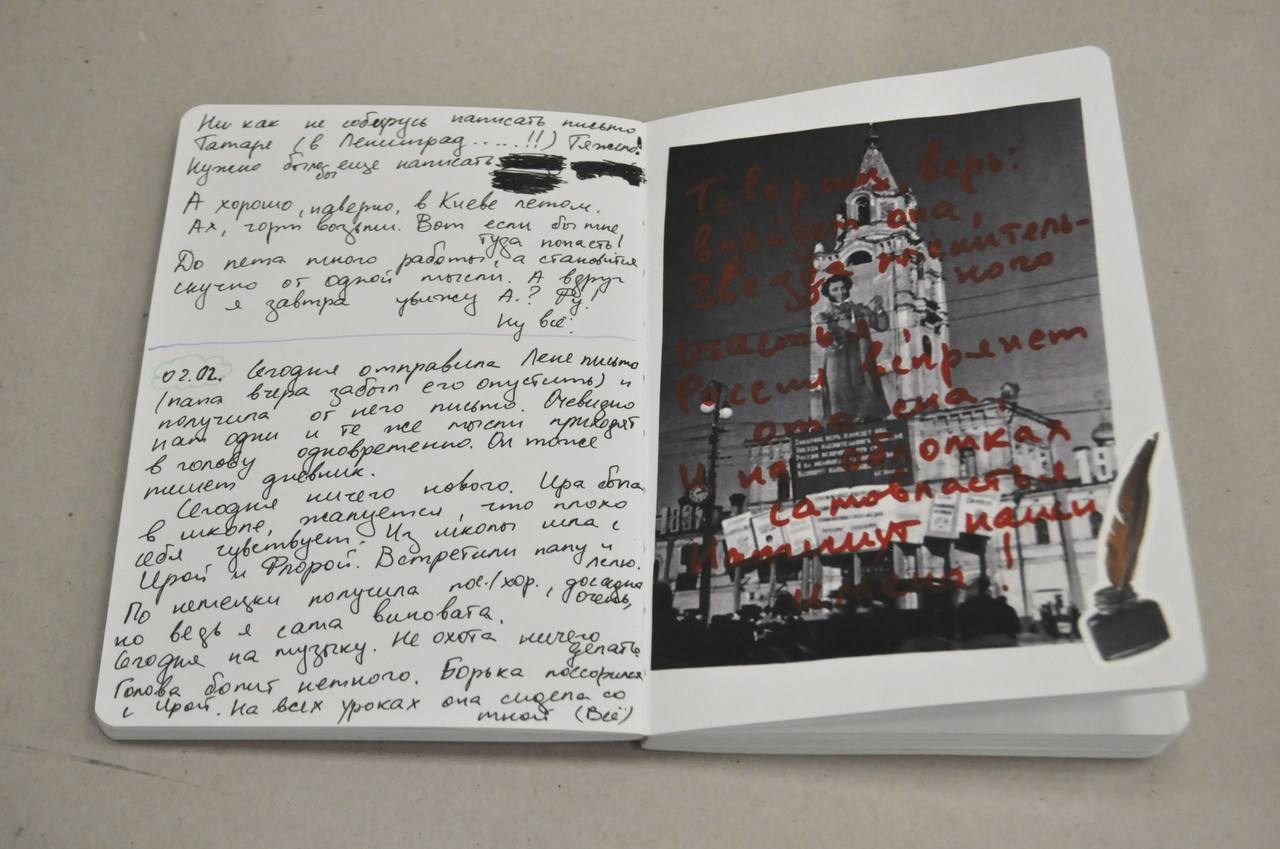 Ни как не соберусь написать письмо
Татаре (в Ленинград.....!!) Тяжело!
Нужно было бы еще написать
А хорошо, наверно, в Киеве летом.
Ах, чорт возьми. Вот если бы мне
туда попасть!
До лета много работы, а становится
скучно от одной мысли. А вдруг
я завтра увижу А.? Фу!
Ну всё.
02.02. Сегодня отправила Лене письмо
(папа вчера забыл его опустить) и
получила от него письмо. Очевидно
нам одни и те же мысли приходят
в голову одновременно. Он тоже
пишет дневник.
Сегодня ничего нового. Ира была
в школе, жалуется, что плохо
себя чувствует. Из школы шла с
Ирой и Флорой. Встретили папу и
Лелю.
По немецки получила пос./хор., досадно
очень,
но ведь я сама виновата.
Сегодня на музыку. Не охота ничего
делать
Голова болит немного. Борька поссорился
с Ирой. На всех уроках она сидела со
мной (Всё)
Товарищ, верь:
взойдет она,
Звезда пленитель-
ного
счастья,
Россия вспрянет
ото сна,
И на обломках
самовластья
Напишут наши
имена!
ТОВАРИЩ, ВЕРЬ: ВЗОЙДЕТ ОНА,
ЗВЕЗДА ПЛЕНИТЕЛЬНОГО
РОССИЯ ВСПРЯНЕТ
И НА
1837